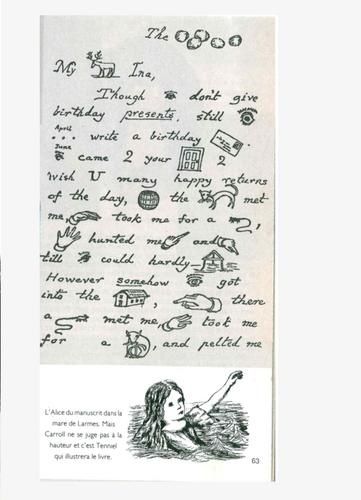 The
My Ina,
Though don't give
birthday presents, still
April
... write a birthday
June
came 2 your 2
wish U many happy returns
of the day, the met
me, took me for a ,
hunted me and
till could hardly
However somehow got
into the , there
a met me, took me
for a , and pelted me
L'Alice du manuscrit dans la
mare de Larmes. Mais
Carroll ne se juge pas à la
hauteur et c'est Tenniel
qui illustrera le livre.
63